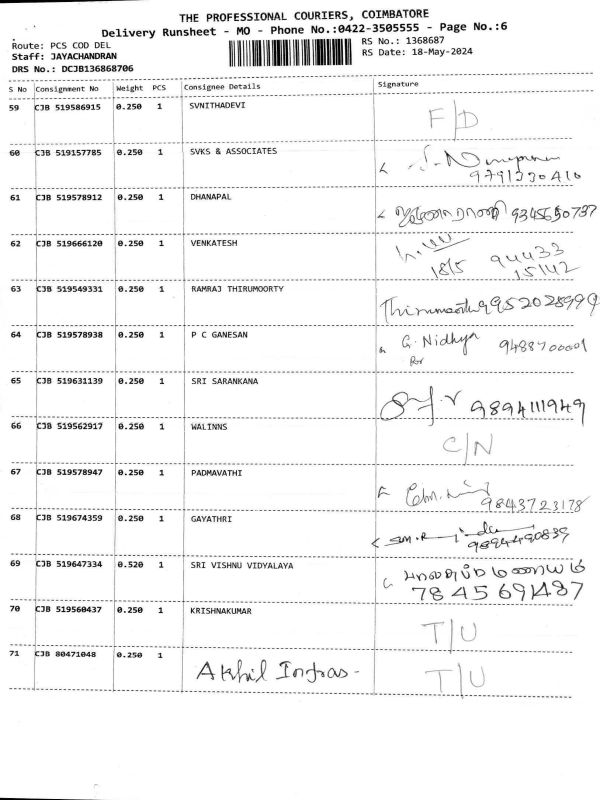 THE PROFESSIONAL COURIERS, COIMBATORE
Delivery Runsheet - MO - Phone No.:0422-3505555 - Page No.:6
Route: PCS COD DEL RS No.: 1368687
Staff: JAYACHANDRAN RS Date: 18-May-2024
DRS No.: DCJB136868706
S No Consignment No Weight PCS Consignee Details Signature
59 CJB 519586915 0.250 1 SVNITHADEVI F/D
60 CJB 519157785 0.250 1 SVKS & ASSOCIATES
9791330410
61 CJB 519578912 0.250 1 DHANAPAL
62 CJB 519666120 0.250 1 VENKATESH 94433
18/5 15142
63 CJB 519549331 0.250 1 RAMRAJ THIRUMOORTY Thirumoorthy 9952028999
64 CJB 519578938 0.250 1 P C GANESAN G. Nidhya 9488700001
65 CJB 519631139 0.250 1 SRI SARANKANA 9894111949
66 CJB 519562917 0.250 1 WALINNS C/N
67 CJB 519578947 0.250 1 PADMAVATHI
9843723178
68 CJB 519674359 0.250 1 GAYATHRI
9894490839
69 CJB 519647334 0.520 1 SRI VISHNU VIDYALAYA
78 45 691487
70 CJB 519560437 0.250 1 KRISHNAKUMAR T/U
71 CJB 80471048 0.250 1 Akhil Infras - T/U